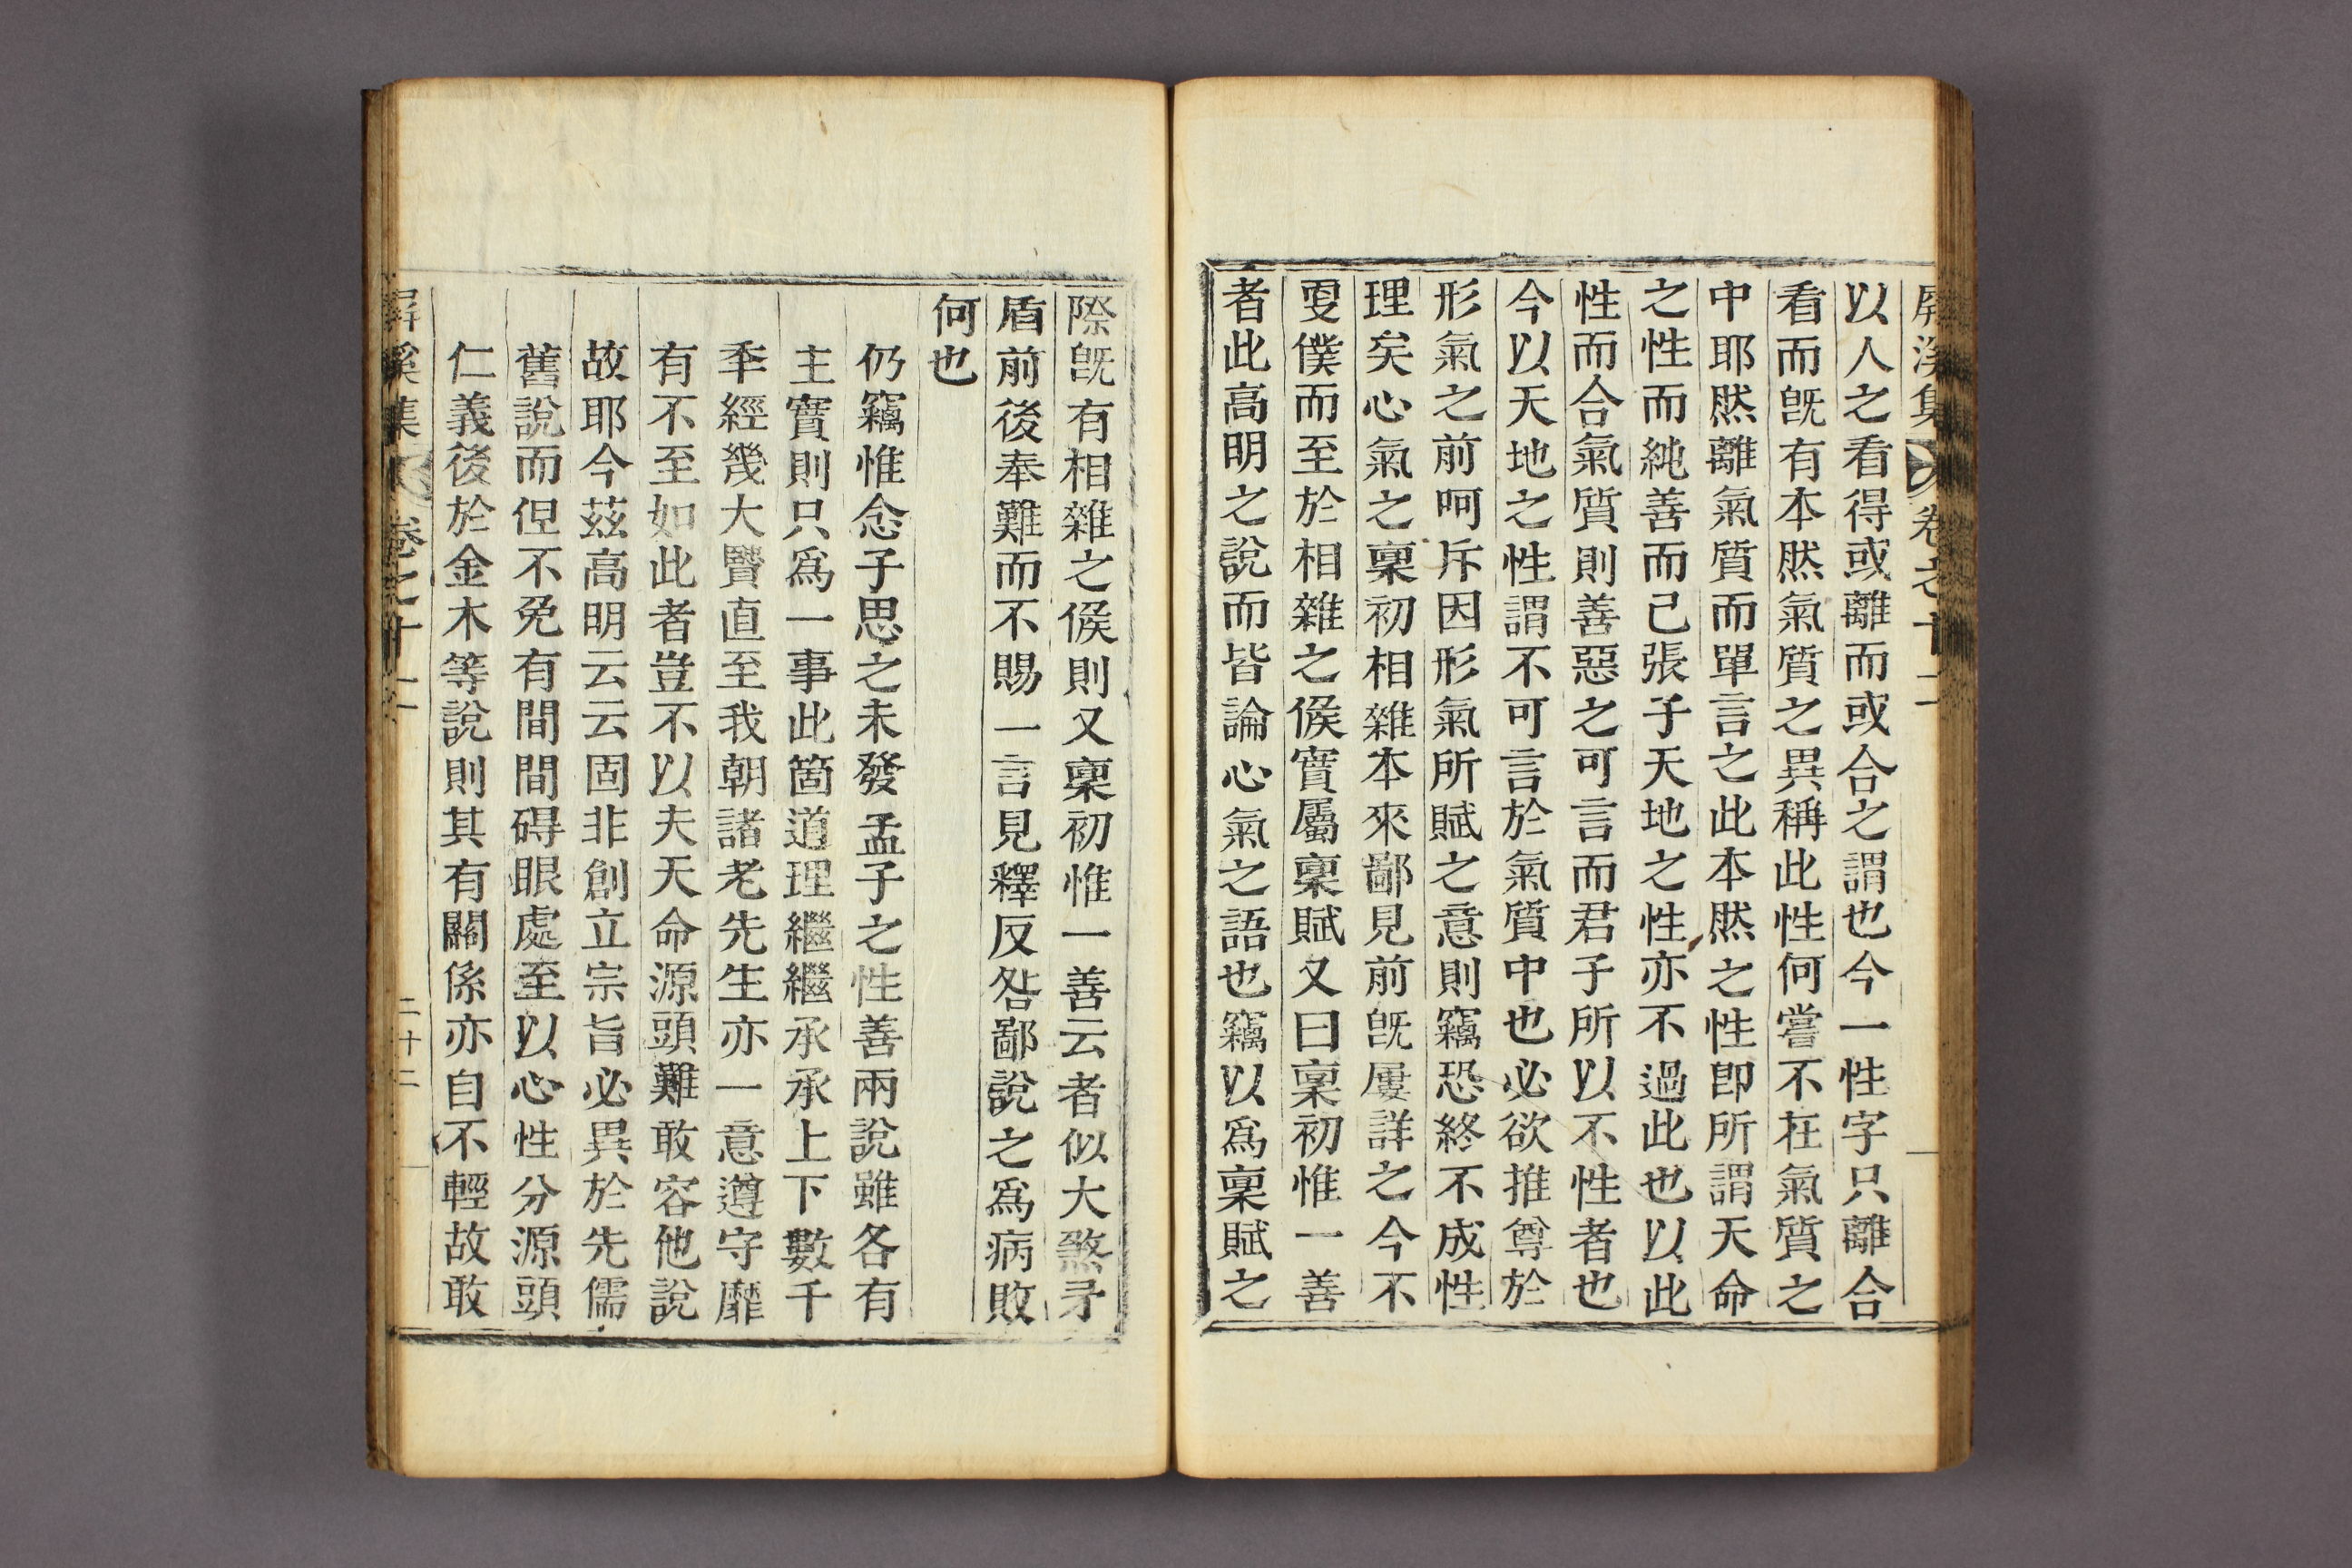 屛溪集 卷之十二
以人之看得或離而或合之謂也今一性字只離合
看而旣有本然氣質之異稱此性何嘗不在氣質之
中耶然離氣質而單言之此本然之性卽所謂天命
之性而純善而已張子天地之性亦不過此也以此
性而合氣質則善惡之可言而君子所以不性者也
今以天地之性謂不可言於氣質中也必欲推尊於
形氣之前呵斥因形氣所賦之意則竊恐終不成性
理矣心氣之稟初相雜本來鄙見前旣屢詳之今不
更僕而至於相雜之候實屬稟賦又曰稟初惟一善
者此高明之說而皆論心氣之語也竊以爲稟賦之
際旣有相雜之候則又稟初惟一善云者似大煞矛
盾前後奉難而不賜一言見釋反咎鄙說之爲病敗
何也
仍竊惟念子思之未發孟子之性善兩說雖各有
主實則只爲一事此箇道理繼繼承承上下數千
秊經幾大賢直至我朝諸老先生亦一意遵守靡
有不至如此者豈不以夫天命源頭難敢容他說
故耶今茲高明云云固非創立宗旨必異於先儒
舊說而但不免有間間碍眼處至以心性分源頭
仁義後於金木等說則其有關係亦自不輕故敢
屛溪集 卷之十二 二十二